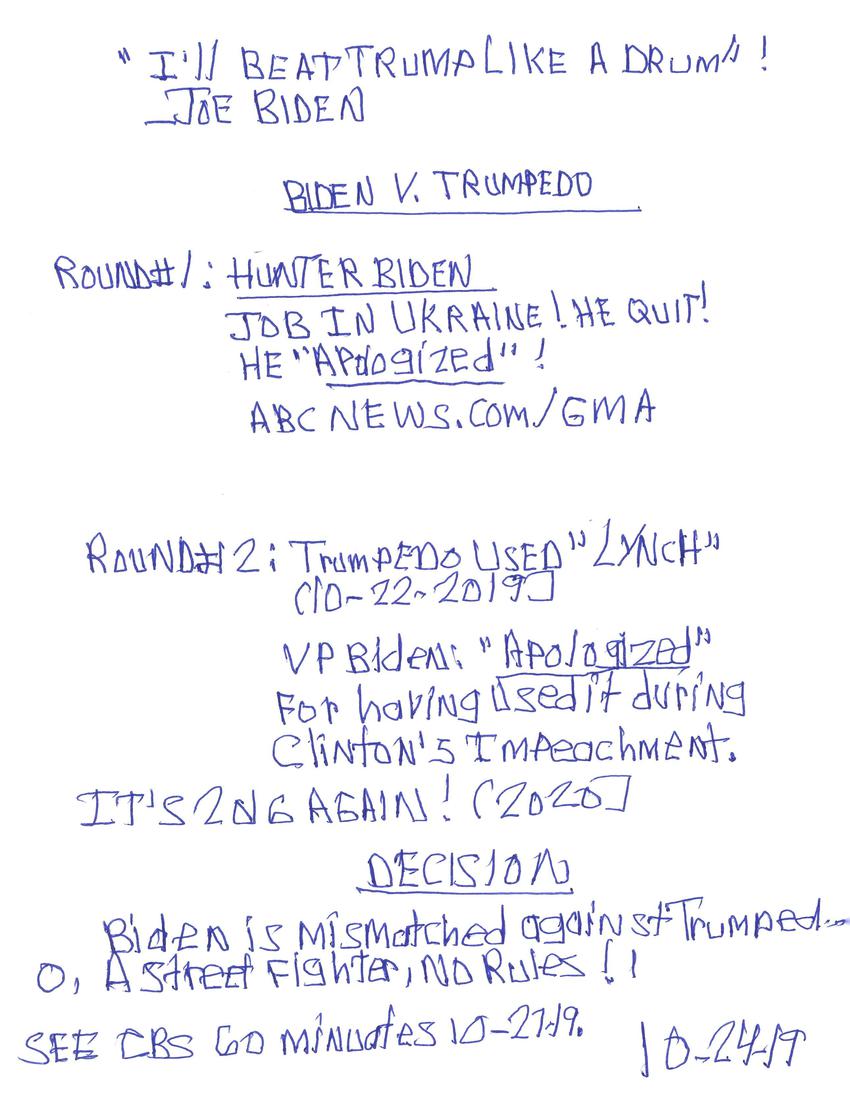 " I'll BEAT TRUMP LIKE A DRUM" !
_JOE BIDEN
BIDEN V. TRUMPEDO
ROUND#1: HUNTER BIDEN
JOB IN UKRAINE! HE QUIT!
HE "Apologized" !
ABC NEWS.COM/GMA
ROUND#2: TrumpEDO USED "LYNCH"
(10-22-2019]
VP BIden: "Apologized"
For having used it during
Clinton's Impeachment.
IT'S 2NG AGAIN! (2020]
DECISION
Biden is Mismatched against Trumped--
O, A street Fighter, NO Rules !!
SEE CBS 60 minuates 10-27-19.
10-24-19